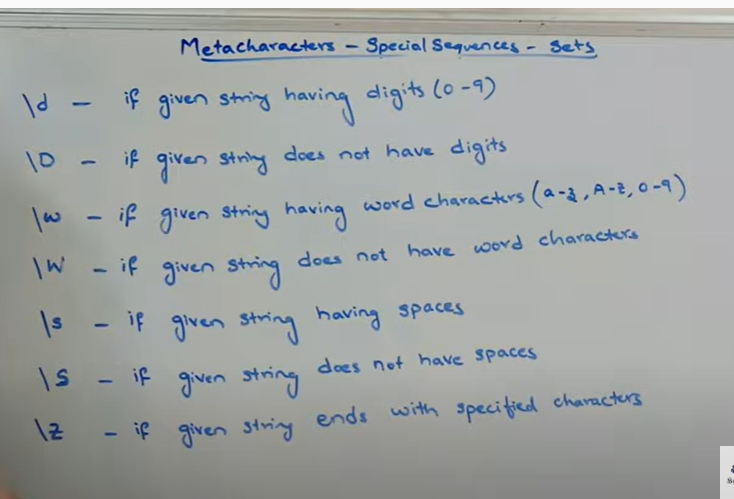 Metacharacters - Special Sequences - Sets
\d - if given string having digits (0-9)
\D - if given string does not have digits
\w - if given string having word characters (a-z, A-Z, 0-9)
\W - if given string does not have word characters
\s - if given string having spaces
\S - if given string does not have spaces
\Z - if given string ends with specified characters